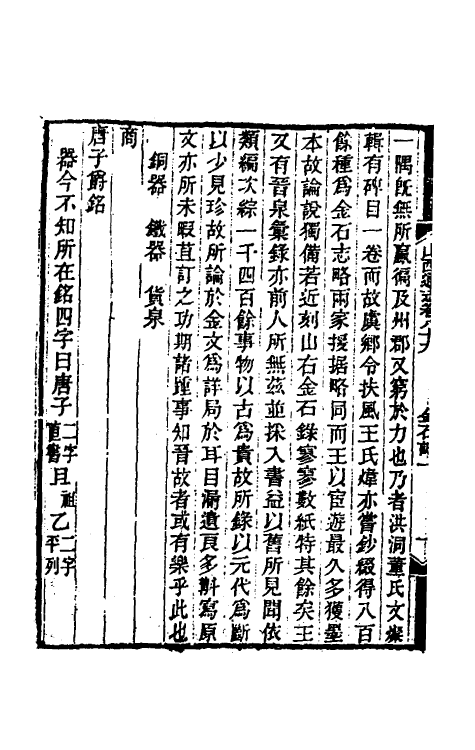 一隅既無所贏稱及州郡又窮於力也乃者洪洞董氏文燦
輯有碑目一卷而故虞鄉令扶風王氏煒亦嘗鈔綴得八百
餘種爲金石志略兩家援据略同而王以宦遊最久多獲墨
本故論說獨備若近刻山右金石錄寥寥數紙特其餘矣王
又有晉泉彙錄亦前人所無茲並採入書益以舊所見聞依
類編次綜一千四百餘事物以古爲貴故所錄以元代爲斷
以少見珍故所論於金文爲詳局於耳目漏遺良多斠寫原
文亦所未暇苴訂之功期諸踵事知晉故者或有樂乎此也
銅器 鐵器 貨泉
商
唐子爵銘
器今不知所在銘四字曰唐子二字直書且祖乙二字平列
山西通志卷八十九 金石記一